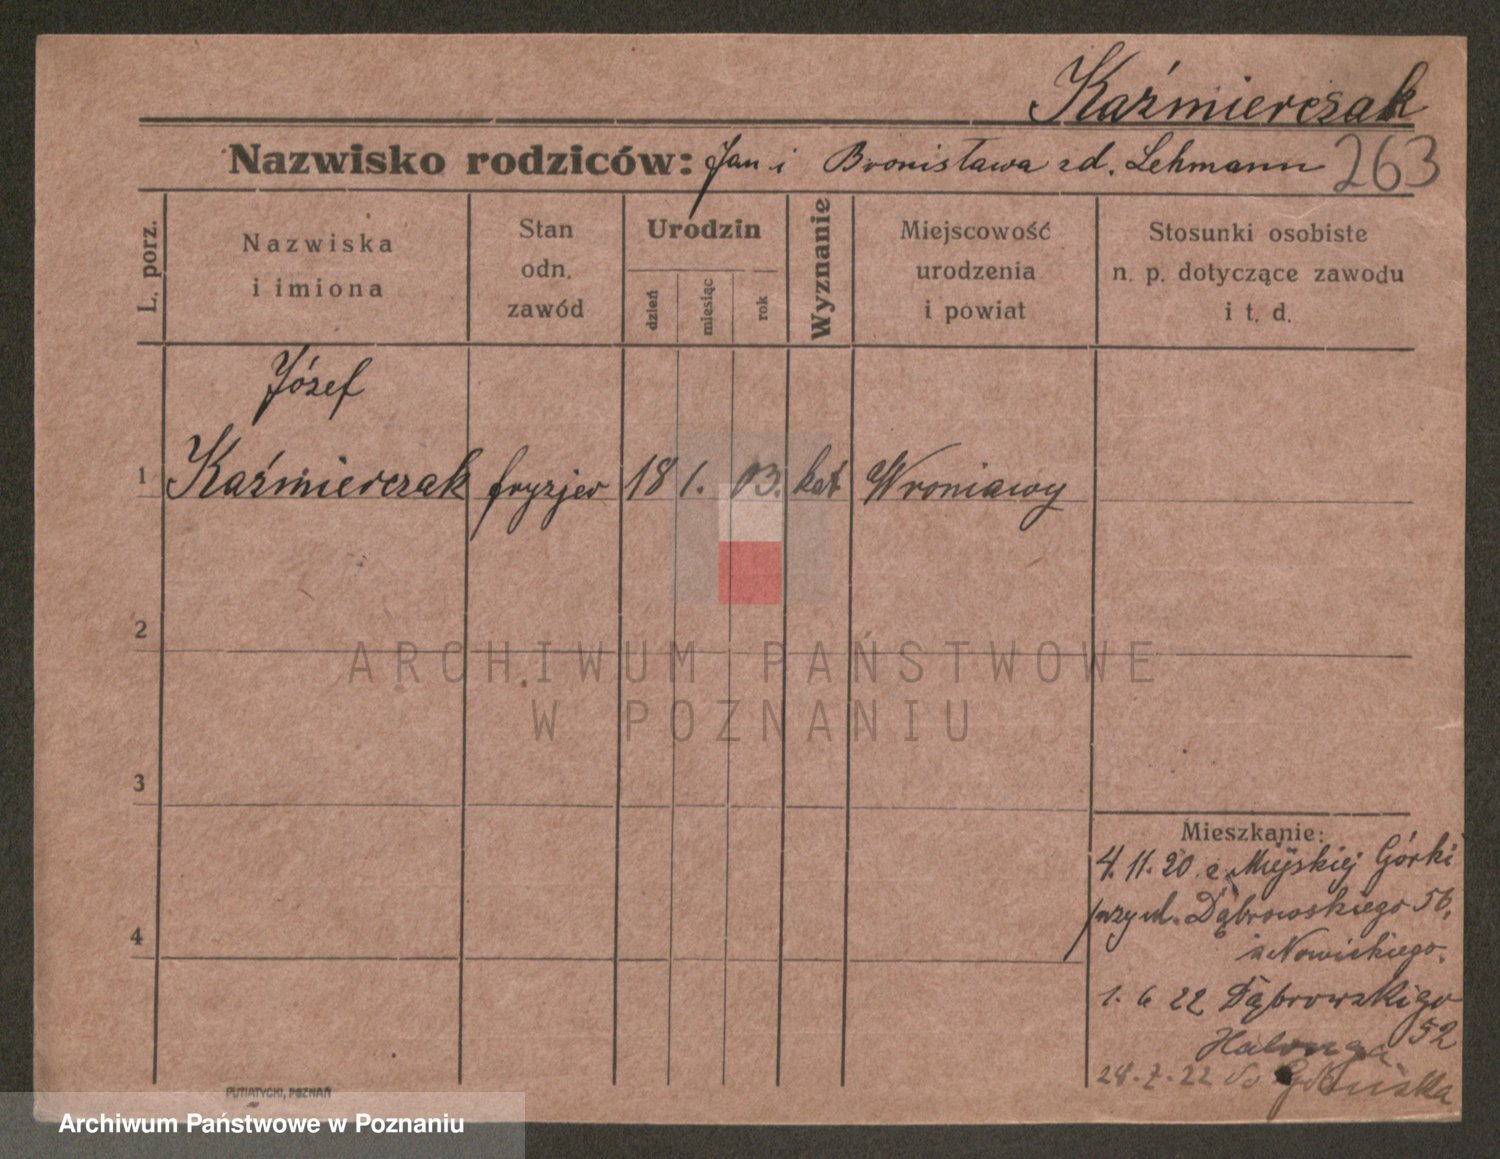 Kaźmierczak
Nazwisko rodziców: Jan i Bronisława zd. Lehmann 263
L. porz.
Nazwiska
i imiona
Stan
odn.
zawód
Urodzin
dzień
miesiąc
rok
Wyznanie
Miejscowość
urodzenia
i powiat
Stosunki osobiste
n. p. dotyczące zawodu
i t. d.
Józef
1 Kaźmierczak fryzjer 18 1. 03. kat Wroniawy
2
ARCHIWUM PAŃSTWOWE
W POZNANIU
3
Mieszkanie:
4. 11. 20 z Miejskiej Górki
przy ul. Dąbrowskiego 56,
u Nowickiego.
4
1. 6 22 Dąbrowskigo
52
28. 7. 22 do Gdańska
PUTIATYCKI, POZNAŃ
Archiwum Państwowe w Poznaniu